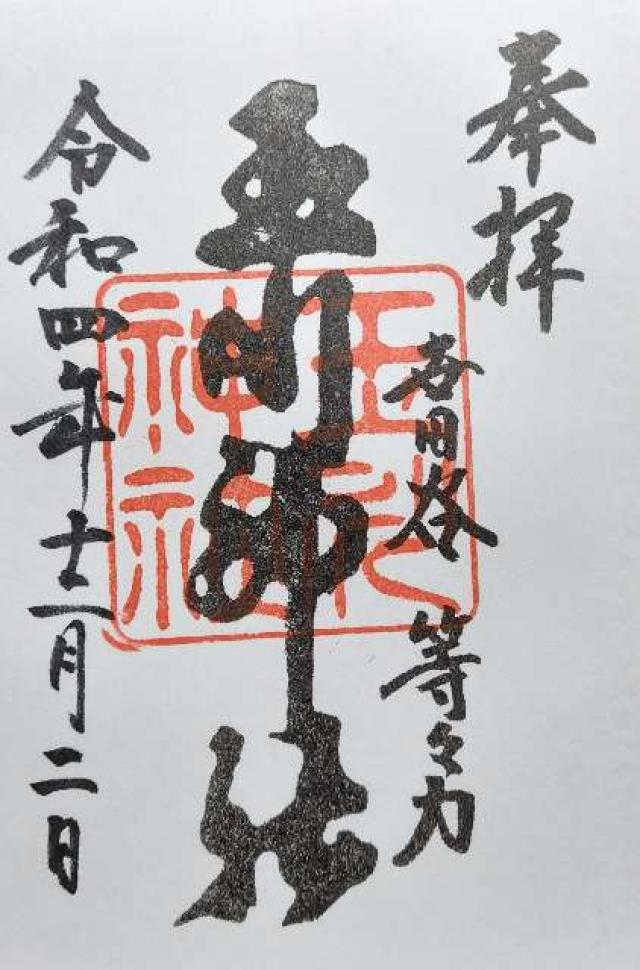 奉拝
世田谷 等々力
玉川神社
令和四年十二月二日
玉川
神社